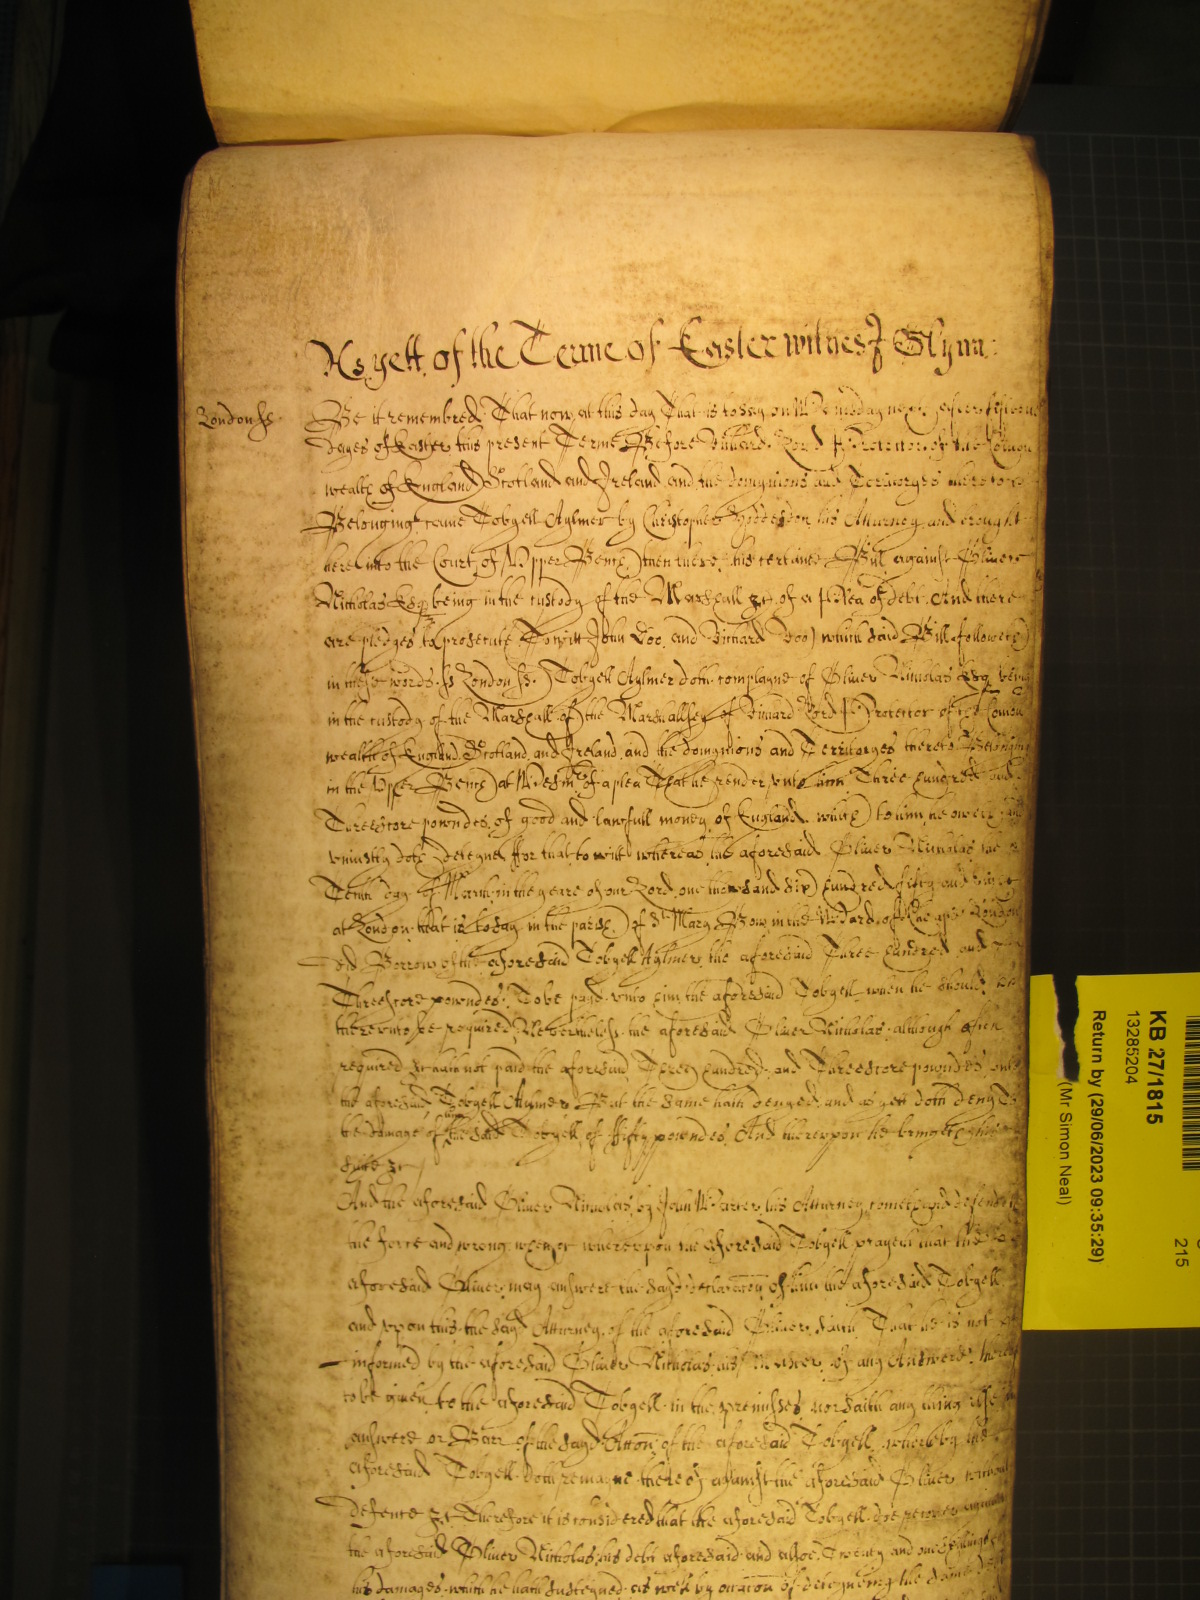 As yett of the Terme of Easter witnes J Glynn:
London ss
Be it remembred That now at this day That is to say on Wednesday next after fifteene
dayes of Easter this present Terme Before Richard Lord Protector of the Comon
wealth of England Scotland and Ireland and the dominions and Territoryes thereto
Belonging came Tobyell Aylmer by Christopher Hoddesdon his Atturney and brought
here into the Court of Upper Bench then there his certaine Bill against Oliver
Nicholas Esqr being in the custody of the Marshall &c of a Plea of debt And there
are pledges to prosecute Towitt John Doo and Richard Roo which said Bill followeth
in these words ss London ss Tobyell Aylmer doth complayne of Oliver Nicholas Esq being
in the custody of the Marshall of the Marshallsey of Richard Lord Protector of the Comon
wealth of England Scotland and Ireland and the dominions and Territoryes thereto Belonging
in the Upper Bench at Westmr of a plea That he render unto him Three hundred and
Threescore powndes of good and lawfull money of England which to him he oweth and
uniustly doth deteyne ffor that to witt whereas the aforesaid Oliver Nicholas the
Tenth day of March in the yeare of our Lord one thowsand six hundred fifty and eight
at London that is to say in the parish of St Mary Bow in the Ward of Cheape London
did Borrow of the aforesaid Tobyell Aylmer the aforesaid Three hundred and
Threescore powndes To be payd unto him the aforesaid Tobyell when he should be
thereunto be required Neverthelesse the aforesaid Oliver Nicholas although often
required &c hath not payd the aforesaid Three hundred and Threescore powndes unto
the aforesaid Tobyell Aylmer But the same hath denyed and as yett doth deny To
the damage of him the said Tobyell of ffifty powndes And thereupon he bringeth his
suite &c
And the aforesaid Oliver Nicholas by John Warter his Atturney cometh and defendeth
the force and wrong when &c whereupon the aforesaid Tobyell prayeth that the
aforesaid Oliver may answere the sayd declaracon of him the aforesaid Tobyell
and upon this the sayd Atturney of the aforesaid Oliver saith That he is not
informed by the aforesaid Oliver Nicholas his Master of any Answere therof
to be given to the aforesaid Tobyell in the premisses nor saith any thing else in
answere or Barr of the sayd Accon of the aforesaid Tobyell whereby the
aforesaid Tobyell doth remayne thereof against the aforesaid Oliver without
defence &c Therefore it is considered that the aforesaid Tobyell doe recover against
the aforesaid Oliver Nicholas his debt aforesaid and also Twenty and one shillings
his damages which he hath susteyned as well by occacon of deteyneing the same debt
KB 27/1815
13285204
Return by (29/06/2023 09:35:29)
(Mr Simon Neal)
215